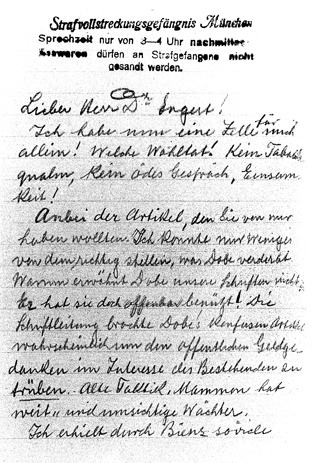 Strafvollstreckungsgefängnis München
Sprechzeit nur von 3-4 Uhr nachmittags
Esswaren dürfen an Strafgefangene nicht
gesandt werden.
Lieber Herr Dr Engert!
Ich habe nun eine Zelle für mich
allein! Welche Wohltat! Kein Tabaks
qualm, kein ödes Gespräch, Einsam
keit!
Anbei der Artikel, den Sie von mir
haben wollten. Ich konnte nur Weniges
von dem richtig stellen, was Dobe verderbt
Warum erwähnt Dobe unsere Schriften nicht,
Er hat sie doch offenbar benüzt! Die
Schriftleitung brachte Dobe's konfusen Artikel
wahrscheinlich um den öffentlichen Geldge-
danken im Interesse des Bestehenden zu
trüben. Alte Taktik, Mammon hat
weit- und umsichtige Wächter.
Ich erhielt durch Bienz so viele